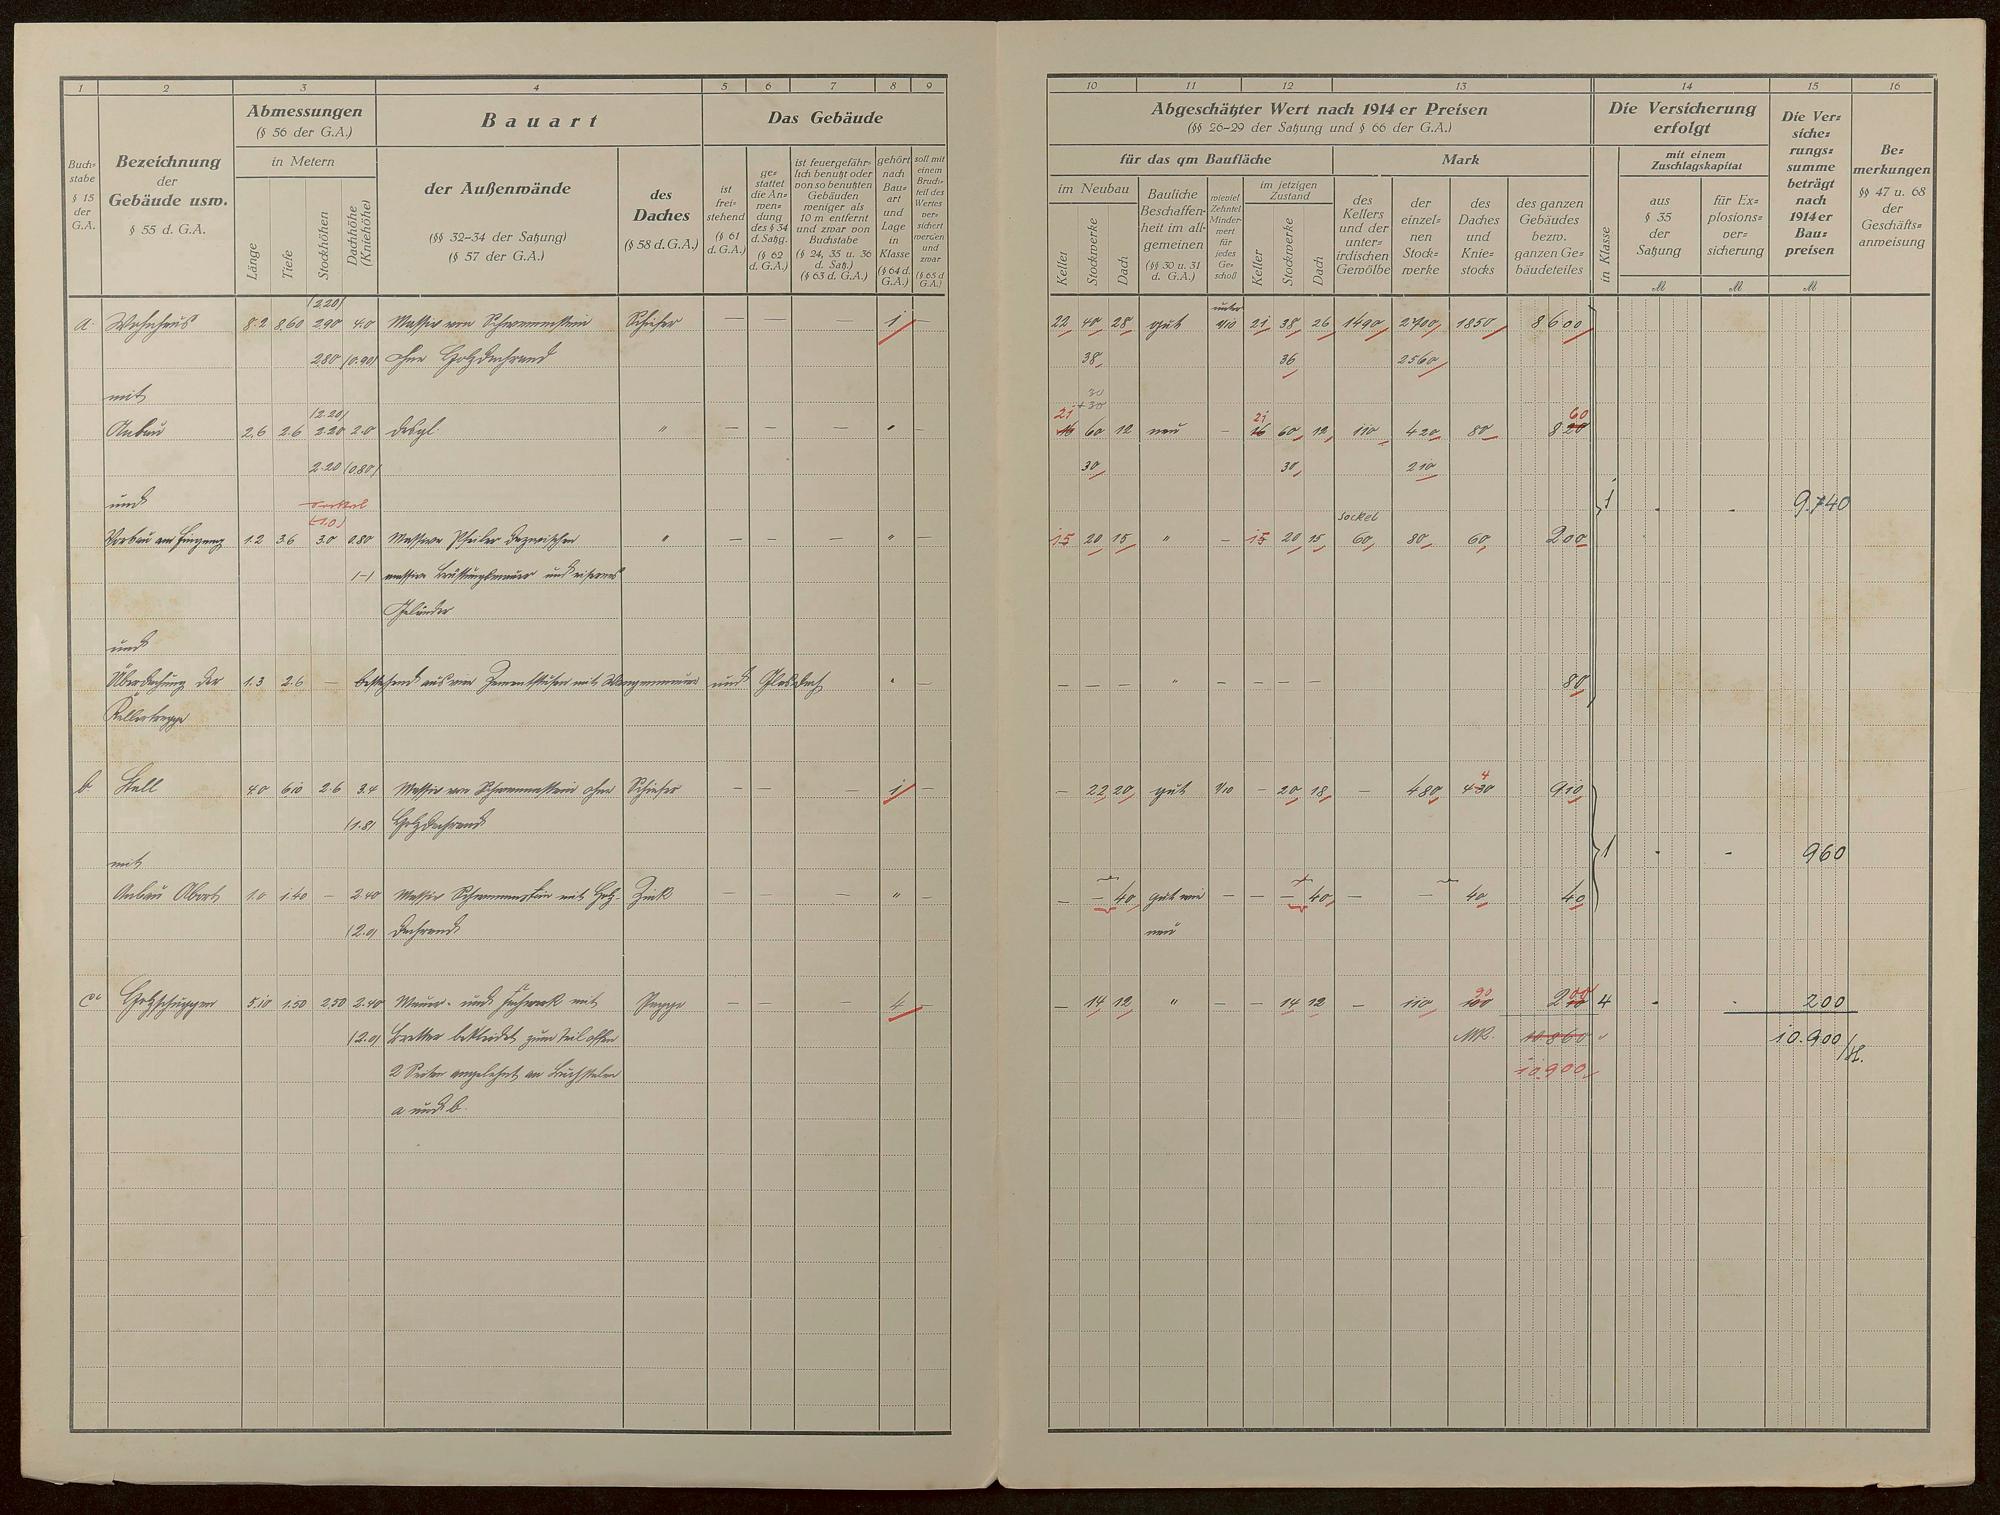 1 2 3 4 5 6 7 8 9
Buch-
stabe
§ 15
der
G.A.
Bezeichnung
der
Gebäude usw.
§ 55 d. G.A.
Abmessungen
(§ 56 der G.A.)
in Metern
Länge
Tiefe
Stockhöhen
Dachhöhe
(Kniehöhe)
Bauart
der Außenwände
(§§ 32-34 der Satzung)
(§ 57 der G.A.)
des
Daches
(§ 58 d.G.A.)
Das Gebäude
ist
frei-
stehend
(§ 61
d.G.A.)
ge-
stattet
die An-
wen-
dung
des § 34
d. Satzg.
(§ 62
d. G.A.)
ist feuergefähr-
lich benutzt oder
von so benutzten
Gebäuden
weniger als
10 m entfernt
und zwar von
Buchstabe
(§ 24, 35 u. 36
d. Satz.)
(§ 63 d. G.A.)
gehört
nach
Bau-
art
und
Lage
in
Klasse
(§ 64 d.
G.A.)
soll mit
einem
Bruch-
teil des
Wertes
ver-
sichert
werden
und
zwar
(§ 65 d
G.A.)
(2.20)
a. Wohnhaus 8.2 8,60 2.90 4.0 Massiv von Schwemmstein Schiefer — — 1 —
2.80 (0.90) ohne Holzdachrand
mit
(2.20)
Anbau 2.6 2.6 2.20 2.0 desgl. " — — — " —
2.20 (0.80)
und Sockel
(1.0)
Vorbau am Eingang 1.2 3.6 3.0 0.80 Massive Pfeiler dazwischen " — — — " —
(-) massive Brüstungsmauer und eisernes
Geländer
und
Überdachung der 1.3 2.6 — bestehend aus von Zementstufen mit Wangenmauer und Glasdach " —
Kellertreppe
b Stall 4.0 6.10 2.6 3.4 Massiv von Schwemmstein ohne Schiefer — — — 1 —
(1.8) Holzdachrand
mit
Anbau Abort 1.0 1.40 — 2.40 Massiv Schwemmstein mit Holz- Zink — — — " —
(2.0) dachrand
c Holzschuppen 5.10 1.50 2.50 2.40 Mauer- und Fachwerk mit Pappe — — — 4 —
(2.0) Bretter bekleidet zum Teil offen
2 Seiten angelehnt an Buchstaben
a und b.
10 11 12 13 14 15 16
Abgeschätzter Wert nach 1914 er Preisen
(§§ 26-29 der Satzung und § 66 der G.A.)
für das qm Baufläche
Mark
im Neubau
Keller
Stockwerke
Dach
Bauliche
Beschaffen-
heit im all-
gemeinen
(§§ 30 u. 31
d. G.A.)
wieviel
Zehntel
Minder-
wert
für
jedes
Ge-
schoß
im jetzigen
Zustand
Keller
Stockwerke
Dach
des
Kellers
und der
unter-
irdischen
Gewölbe
der
einzel-
nen
Stock-
werke
des
Daches
und
Knie-
stocks
des ganzen
Gebäudes
bezw.
ganzen Ge-
bäudeteiles
Die Versicherung
erfolgt
in Klasse
mit einem
Zuschlagskapital
aus
§ 35
der
Satzung
für Ex-
plosions-
ver-
sicherung
Die Ver-
siche-
rungs-
summe
beträgt
nach
1914er
Bau-
preisen
Be-
merkungen
§§ 47 u. 68
der
Geschäfts-
anweisung
M M M
unter
22 40 28 gut 1/10 21 38 26 1490 2700 1850 8600
38 36 2560
30
21 +30 21 60
16 60 12 neu — 16 60 12 110 420 80 820
30 30 210
1 - - 9.740
Sockel
15 20 15 " — 15 20 15 60 80 60 200
— — — " — — — — 80
4
— 22 20 gut 1/10 — 20 18 — 480 430 910
1 - - 960
— — 40 gut wie — — — 40 — — 40 40
neu
90
— 14 12 " — — 14 12 — 110 100 200 4 - - 200
MK. 10 860 10.900
10.900